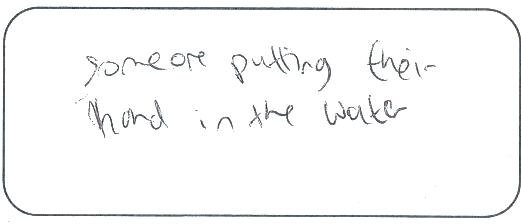 someone putting their
hand in the water